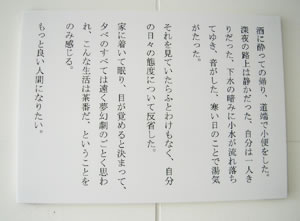 酒に酔っての帰り、道端で小便をした。
深夜の路上は静かだった。自分は一人き
りだった。下水の暗みに小水が流れ落ち
てゆき、音がした。寒い日のことで湯気
がたった。
それを見ていたらふとわけもなく、自分
の日々の態度について反省した。
家に着いて眠り、目が覚めると決まって、
夕べのすべては遠く夢幻劇のごとく思わ
れ、こんな生活は茶番だ、ということを
のみ感じる。
もっと良い人間になりたい。